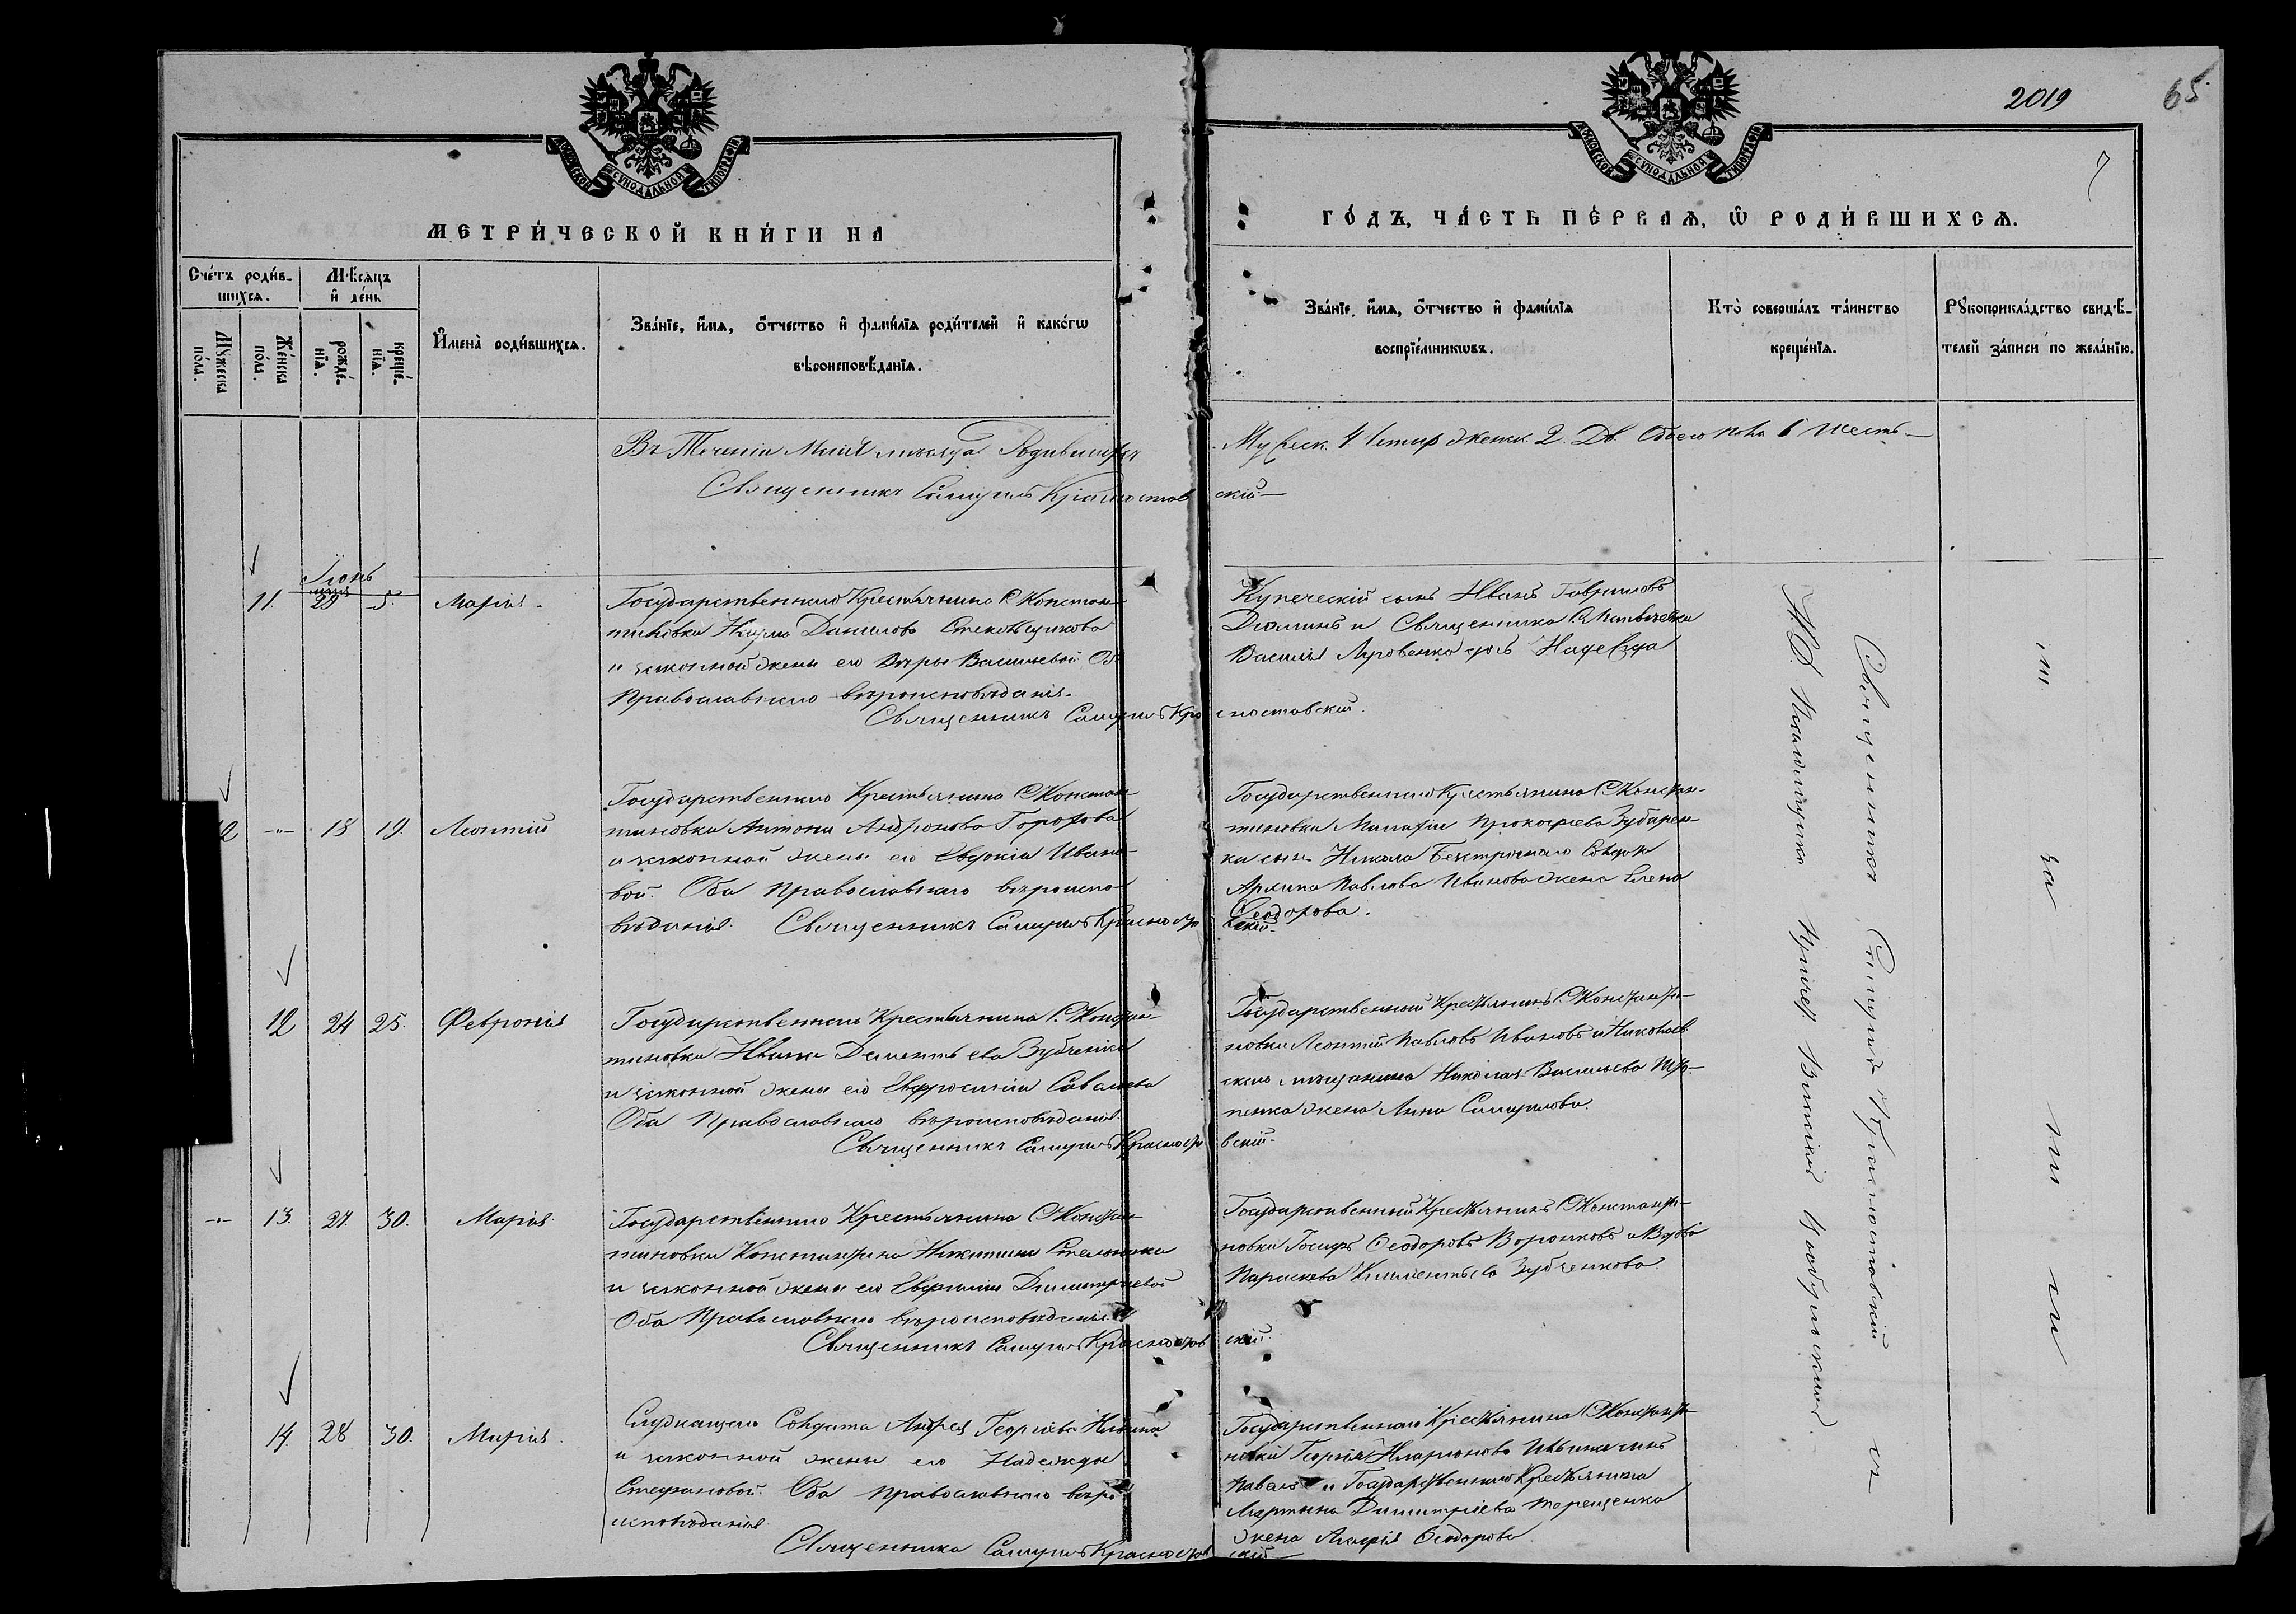 2019
65
7
МЕТРИ́ЧЕСКОЙ КНИ́ГИ НА
ГО́ДЪ, ЧА́СТЬ ПЕ́РВАѦ, Ѡ РОДИ́ВШИХСѦ.
Сче́тъ роди́в-
шихсѧ.
Мѣсѧцъ
и де́нь
Мꙋжеска по́ла.
Же́нска по́ла.
рожде́-
нїѧ.
креще́-
нїѧ.
Имена̀ роди́вшихсѧ.
Зва́нїе, и́мѧ, о́тчество и фами́лїѧ роди́телей и како́гѡ
вѣроисповѣданїѧ.
Зва́нїе, и́мѧ, о́тчество и фами́лїѧ
воспрїе́мникѡвъ.
Кто̀ соверша́лъ та́инство
креще́нїѧ.
Рꙋкоприкла́дство свидѣ-
телей за́писи по жела́нїю.
Священникъ Самуилъ Красностав
скій
Іюнь
11. 29 5. Марія
Государственнаго Крестьянина С. Констан-
тиновки Данилова
и законной жены его Вѣры Васильевой Оба
Православнаго вѣроисповѣданія.
Священникъ Самуилъ Кра
сноставскій.
Купеческій сынъ Иванъ Гавриловъ
и Священника
Василія дочь Надежда
12 18 19. Леонтій
Государственнаго Крестьянина С. Констан-
тиновки Антона Андронова Горохова
и законной жены его Евдокіи Ивано-
вой. Оба Православнаго вѣроиспо
вѣданія. Священникъ Самуилъ Красностав
скій
Государственнаго Крестьянина С. Констан-
тиновки Прокофьева Зубчен-
ка сынъ Никола
Архипа Павлова Иванова жена Елена
Ѳеодорова.
12 24 25. Февронія
Государственнаго Крестьянина С. Констан-
тиновки Ивана Дементьева Зубченка
и законной жены его Евфросиніи Савельева
Оба Православнаго вѣроисповѣданія
Священникъ Самуилъ Красноста
вскій.
Государственный Крестьянинъ С. Константи-
новки Леонтій Павловъ Ивановъ и Николаев
скаго мѣщанина Николая Васильева
жена Анна Самуилова.
13. 27. 30. Марія.
Государственнаго Крестьянина С. Констан-
тиновки Константина Никитина
и законной жены его Евфиміи Димитріевой
Оба Православнаго вѣроисповѣданія.
Священникъ Самуилъ Красностав
скій
Государственный Крестьянинъ С. Константи-
новки Іосифъ Ѳеодоровъ Воронковъ и Вдова
Параскева Климентьева Зубченкова.
14. 28 30. Марія.
Служащаго Солдата Андрея Георгіева
и законной жены его Надежды
Стефановой. Оба Православнаго вѣро
исповѣданія.
Священника Самуилъ Красностав
скій
Государственнаго Крестьянина С. Константи-
новки Георгія Иларіонова сынъ
Павелъ и Государственнаго Крестьянина
Мартина Димитріева Терещенка
жена Ѳеодорова
Священникъ Самуилъ Красноставскій и